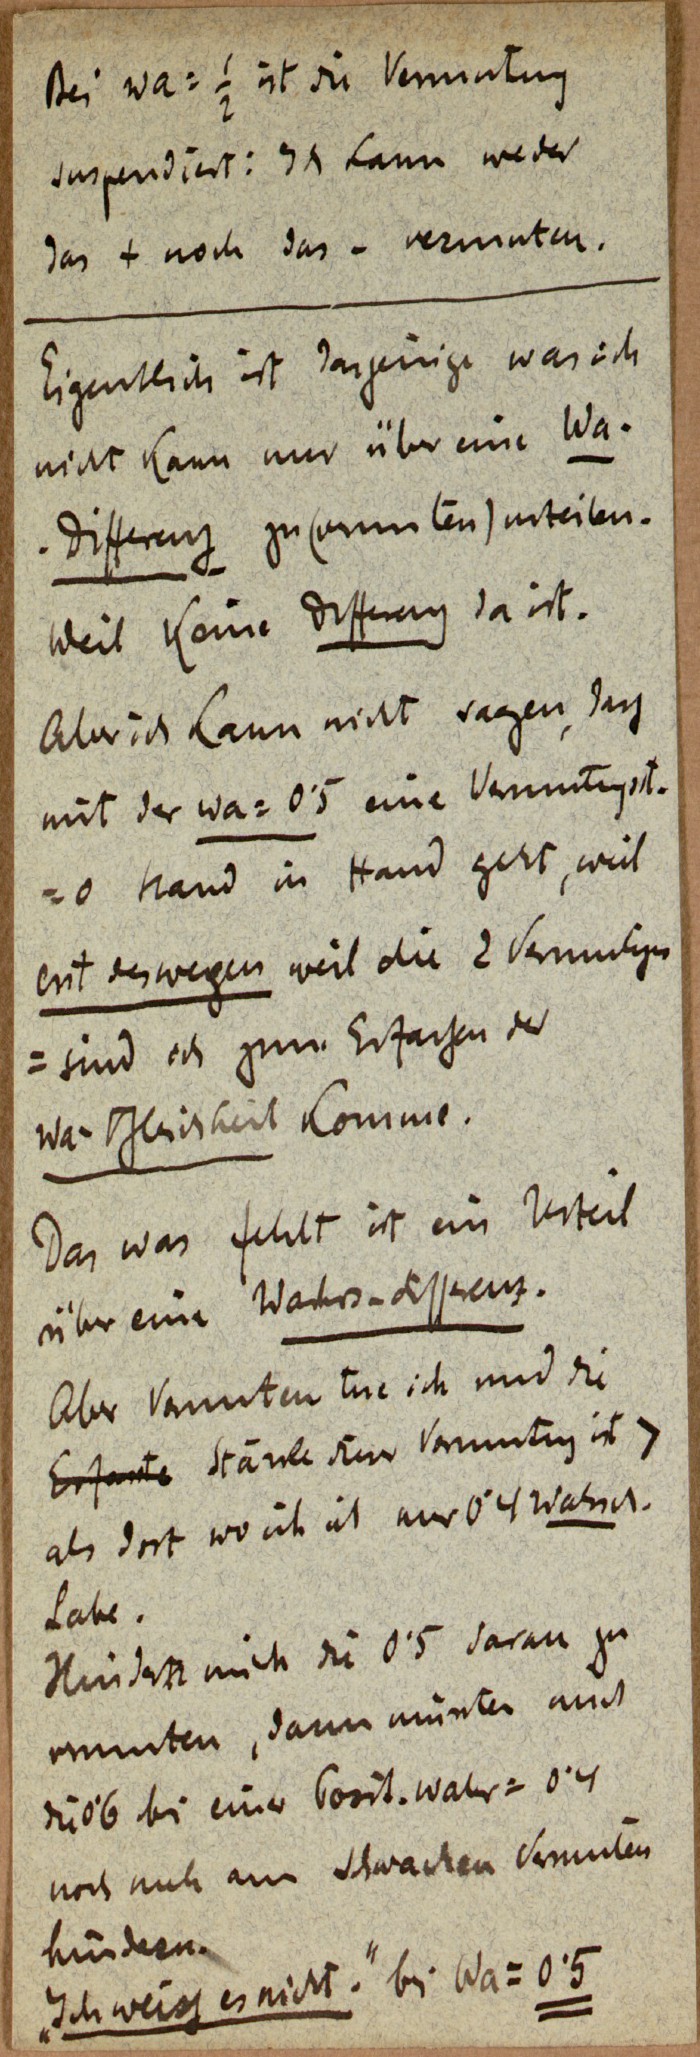 Bei wa = 1/2 ist die Vermutung
suspendiert: Ich kann weder
das + noch das - vermuten.
Eigentlich ist dasjenige was ich
nicht kann nur über eine Wa-
-Differenz zu (vermuten) urteilen.
Weil keine Differenz da ist.
Aber ich kann nicht sagen, dass
mit der wa = 0·5 eine Vermutungsst.
= 0 Hand in Hand geht, weil
erst deswegen weil die 2 Vermutungen
= sind ich zum Erfassen der
Wa-Gleichheit komme.
Das was fehlt ist ein Urteil
über eine Wahrs-differenz.
Aber Vermuten tue ich und die
Stärke dieser Vermutung ist >
als dort wo ich nur 0·4 Wahrsch.
habe.
Hindert mich die 0·5 daran zu
vermuten, dann müssten mich
die 0·6 bei einer Posit. wahr = 0·4
noch mehr am schwachen Vermuten
hindern.
„Ich weiss es nicht." bei Wa = 0·5